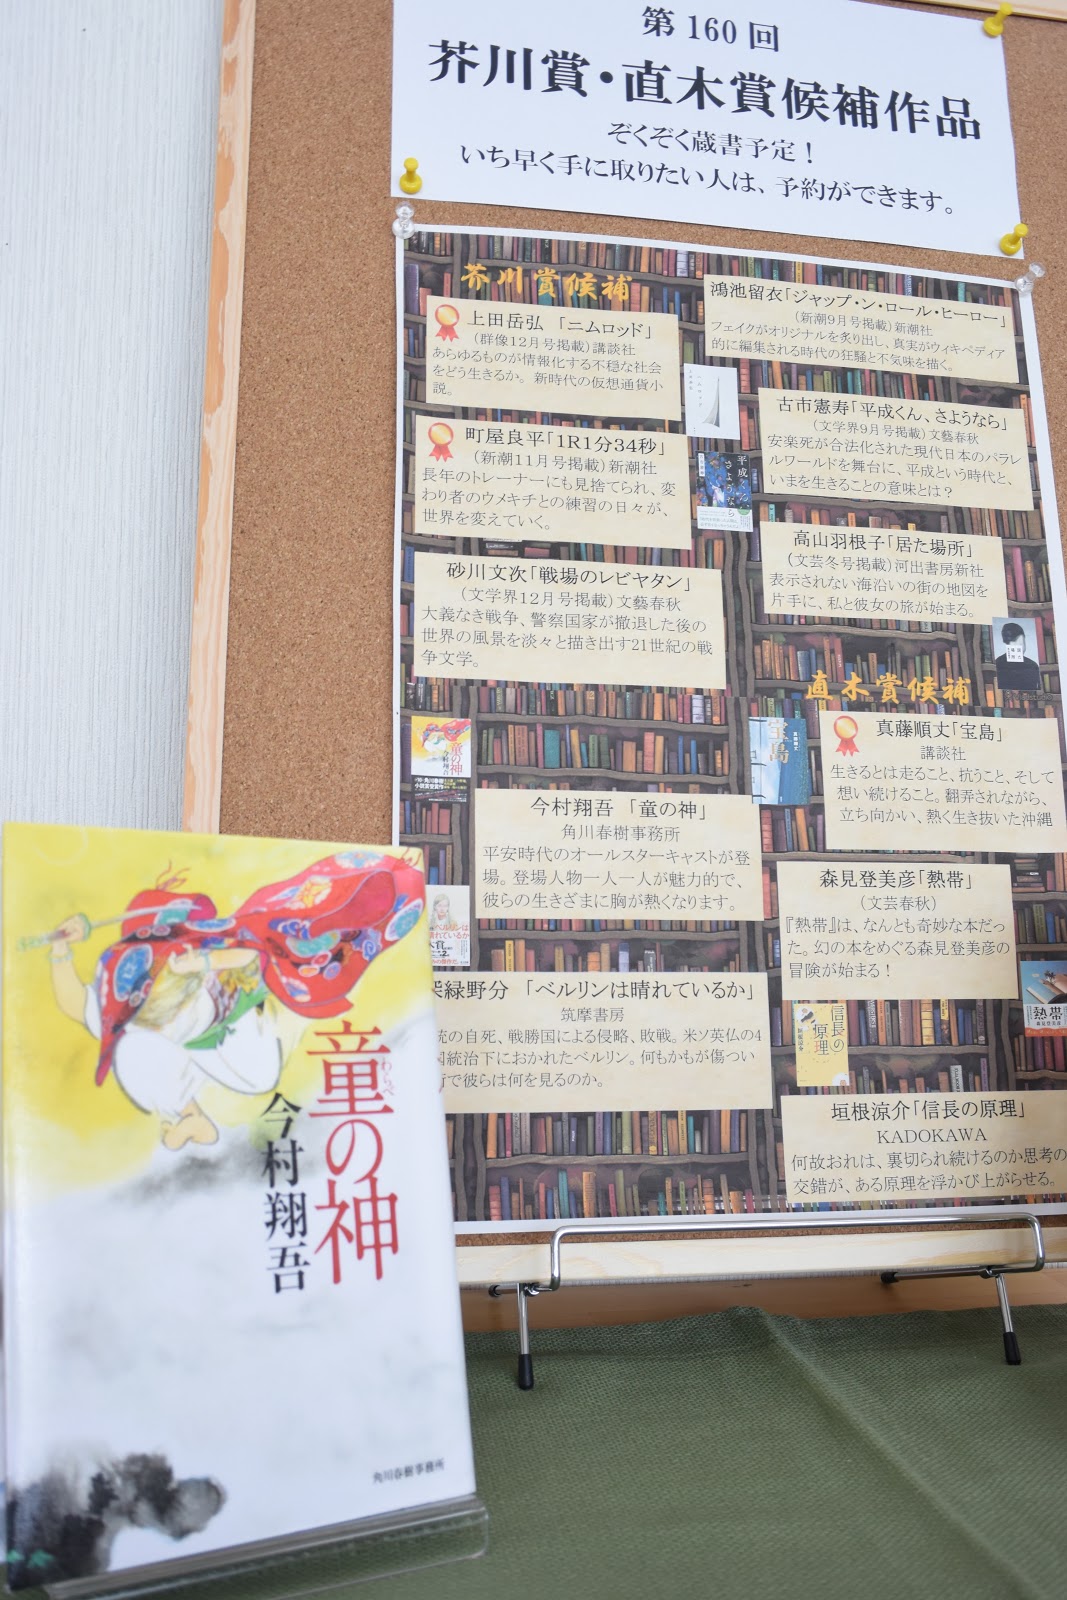 第160回
芥川賞・直木賞候補作品
ぞくぞく蔵書予定！
いち早く手に取りたい人は、予約ができます。
芥川賞候補
上田岳弘 「ニムロッド」
（群像12月号掲載）講談社
あらゆるものが情報化する不穏な社会
をどう生きるか。新時代の仮想通貨小
説。
町屋良平「1R1分34秒」
（新潮11月号掲載）新潮社
長年のトレーナーにも見捨てられ、変
わり者のウメキチとの練習の日々が、
世界を変えていく。
砂川文次「戦場のレビヤタン」
（文学界12月号掲載）文藝春秋
大義なき戦争、警察国家が撤退した後の
世界の風景を淡々と描き出す21世紀の戦
争文学。
鴻池留衣「ジャップ・ン・ロール・ヒーロー」
（新潮9月号掲載）新潮社
フェイクがオリジナルを炙り出し、真実がウィキペディア
的に編集される時代の狂騒と不気味を描く。
古市憲寿「平成くん、さようなら」
（文学界9月号掲載）文藝春秋
安楽死が合法化された現代日本のパラレ
ルワールドを舞台に、平成という時代と、
いまを生きることの意味とは？
高山羽根子「居た場所」
（文芸冬号掲載）河出書房新社
表示されない海沿いの街の地図を
片手に、私と彼女の旅が始まる。
直木賞候補
真藤順丈「宝島」
講談社
生きるとは走ること、抗うこと、そして
想い続けること。翻弄されながら、
立ち向かい、熱く生き抜いた沖縄
今村翔吾 「童の神」
角川春樹事務所
平安時代のオールスターキャストが登
場。登場人物一人一人が魅力的で、
彼らの生きざまに胸が熱くなります。
森見登美彦「熱帯」
（文芸春秋）
『熱帯』は、なんとも奇妙な本だっ
た。幻の本をめぐる森見登美彦の
冒険が始まる！
深緑野分 「ベルリンは晴れているか」
筑摩書房
統の自死、戦勝国による侵略、敗戦。米ソ英仏の4
国統治下におかれたベルリン。何もかもが傷つい
街で彼らは何を見るのか。
垣根涼介「信長の原理」
KADOKAWA
何故おれは、裏切られ続けるのか思考の
交錯が、ある原理を浮かび上がらせる。
平成くん
さようなら
童の神
今村翔吾
宝島
ベルリンは
晴れているか
信長の
原理
熱帯
森見登美彦
童の神
わらべ
今村翔吾
角川春樹事務所